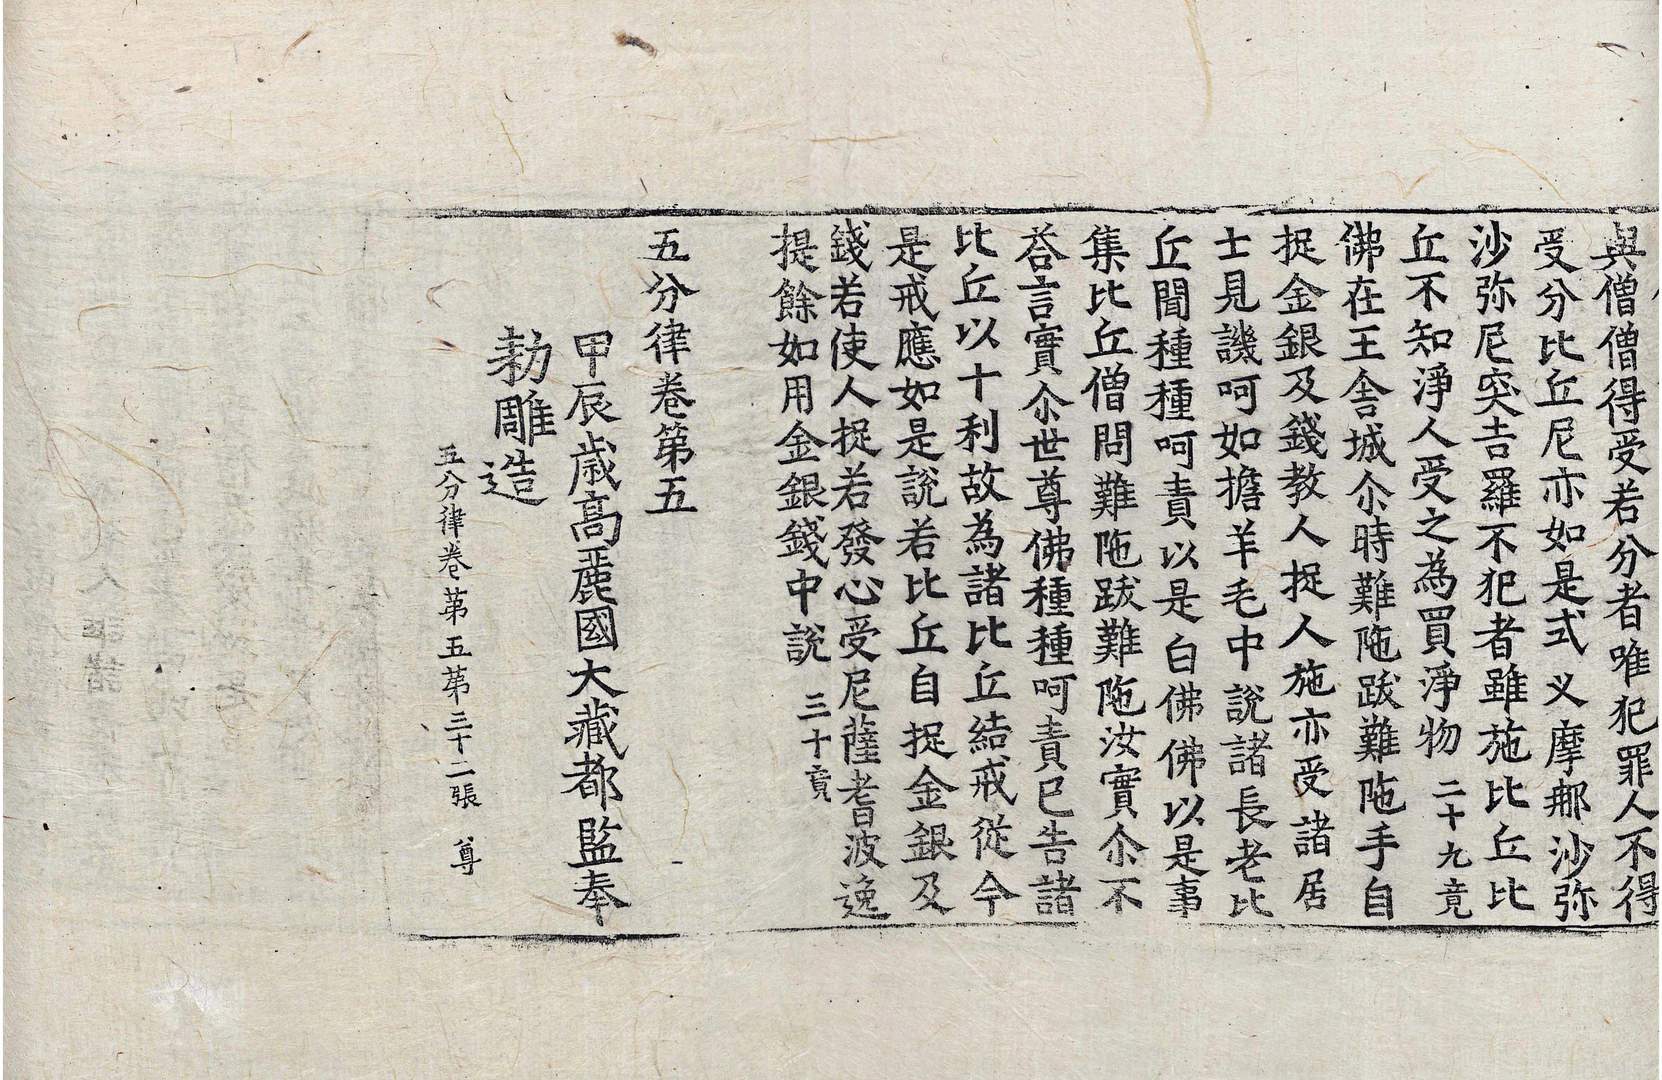 與僧僧得受若分者唯犯罪人不得
受分比丘尼亦如是式义摩那沙弥
沙弥尼突吉羅不犯者雖施比丘比
丘不知淨人受之為買淨物 二十九竟
佛在王舍城尒時難陁跋難陁手自
捉金銀及錢教人捉人施亦受諸居
士見譏呵如擔羊毛中說諸長老比
丘聞種種呵責以是白佛佛以是事
集比丘僧問難陁跋難陁汝實尒不
荅言實尒世尊佛種種呵責已告諸
比丘以十利故為諸比丘結戒從今
是戒應如是說若比丘自捉金銀及
錢若使人捉若發心受尼薩耆波逸
提餘如用金銀錢中說 三十竟
五分律卷第五
甲辰歳高麗國大藏都監奉
勑雕造
五分律卷第五第三十二張 尊